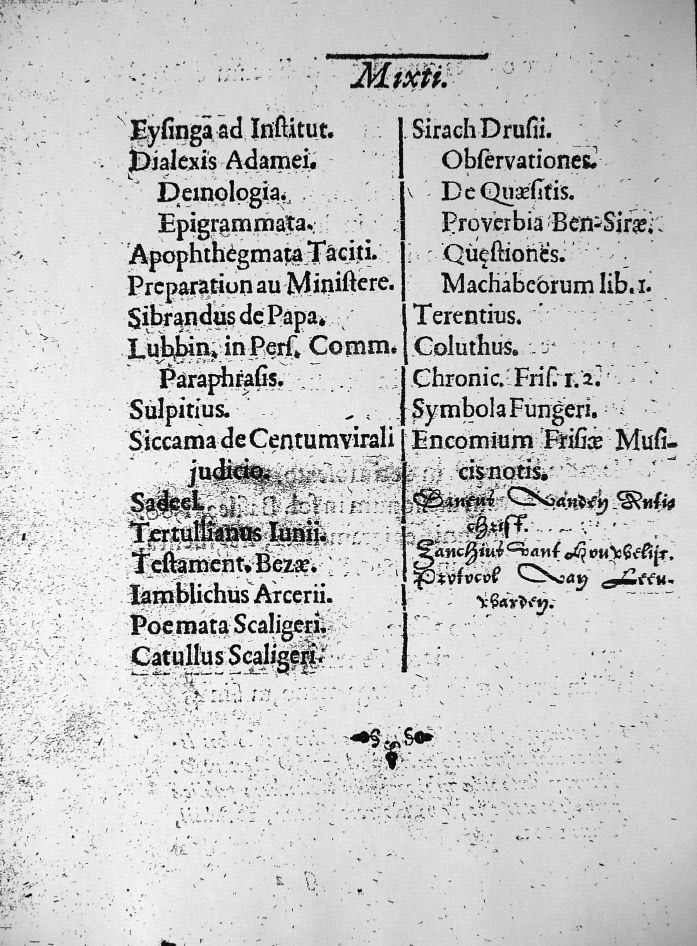 Mixti.
Eyſinga ad Inſtitut.
Dialexis Adamei.
Demologia.
Epigrammata.
Apophthegmata Taciti.
Preparation au Miniſtere.
Sibrandus de Papa.
Lubbin. in Perſ. Comm.
Paraphraſis.
Sulpitius.
Siccama de Centumvirali
judicio.
Sadeel.
Tertullianus Iunii.
Teſtament. Bezæ.
Iamblichus Arcerii.
Poemata Scaligeri.
Catullus Scaligeri.
Sirach Druſii.
Obſervationes.
De Quæſitis.
Proverbia Ben-Siræ.
Quęſtiones.
Machabeorum lib. 1.
Terentius.
Coluthus.
Chronic. Friſ. 1. 2.
Symbola Fungeri.
Encomium Friſiæ Muſi-
cis notis.
Vanden
Chriſt.
Zanchius vant
Protocol Van Leeu-
warden.